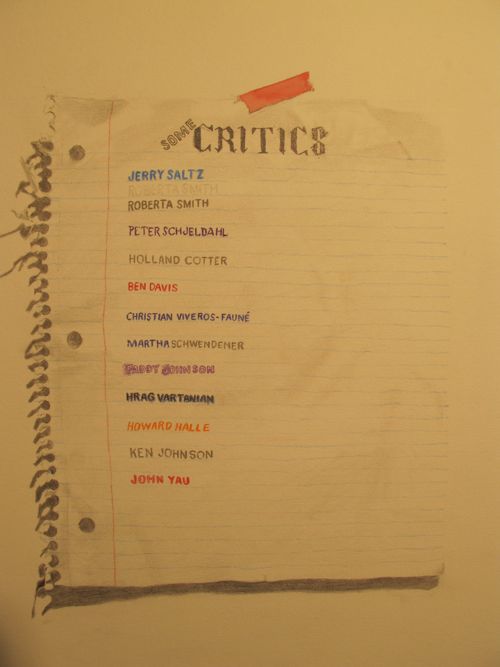 SOME CRITICS
JERRY SALTZ
ROBERTA SMITH
ROBERTA SMITH
PETER SCHJELDAHL
HOLLAND COTTER
BEN DAVIS
CHRISTIAN VIVEROS-FAUNÉ
MARTHA SCHWENDENER
PADDY JOHNSON
HRAG VARTANIAN
HOWARD HALLE
KEN JOHNSON
JOHN YAU